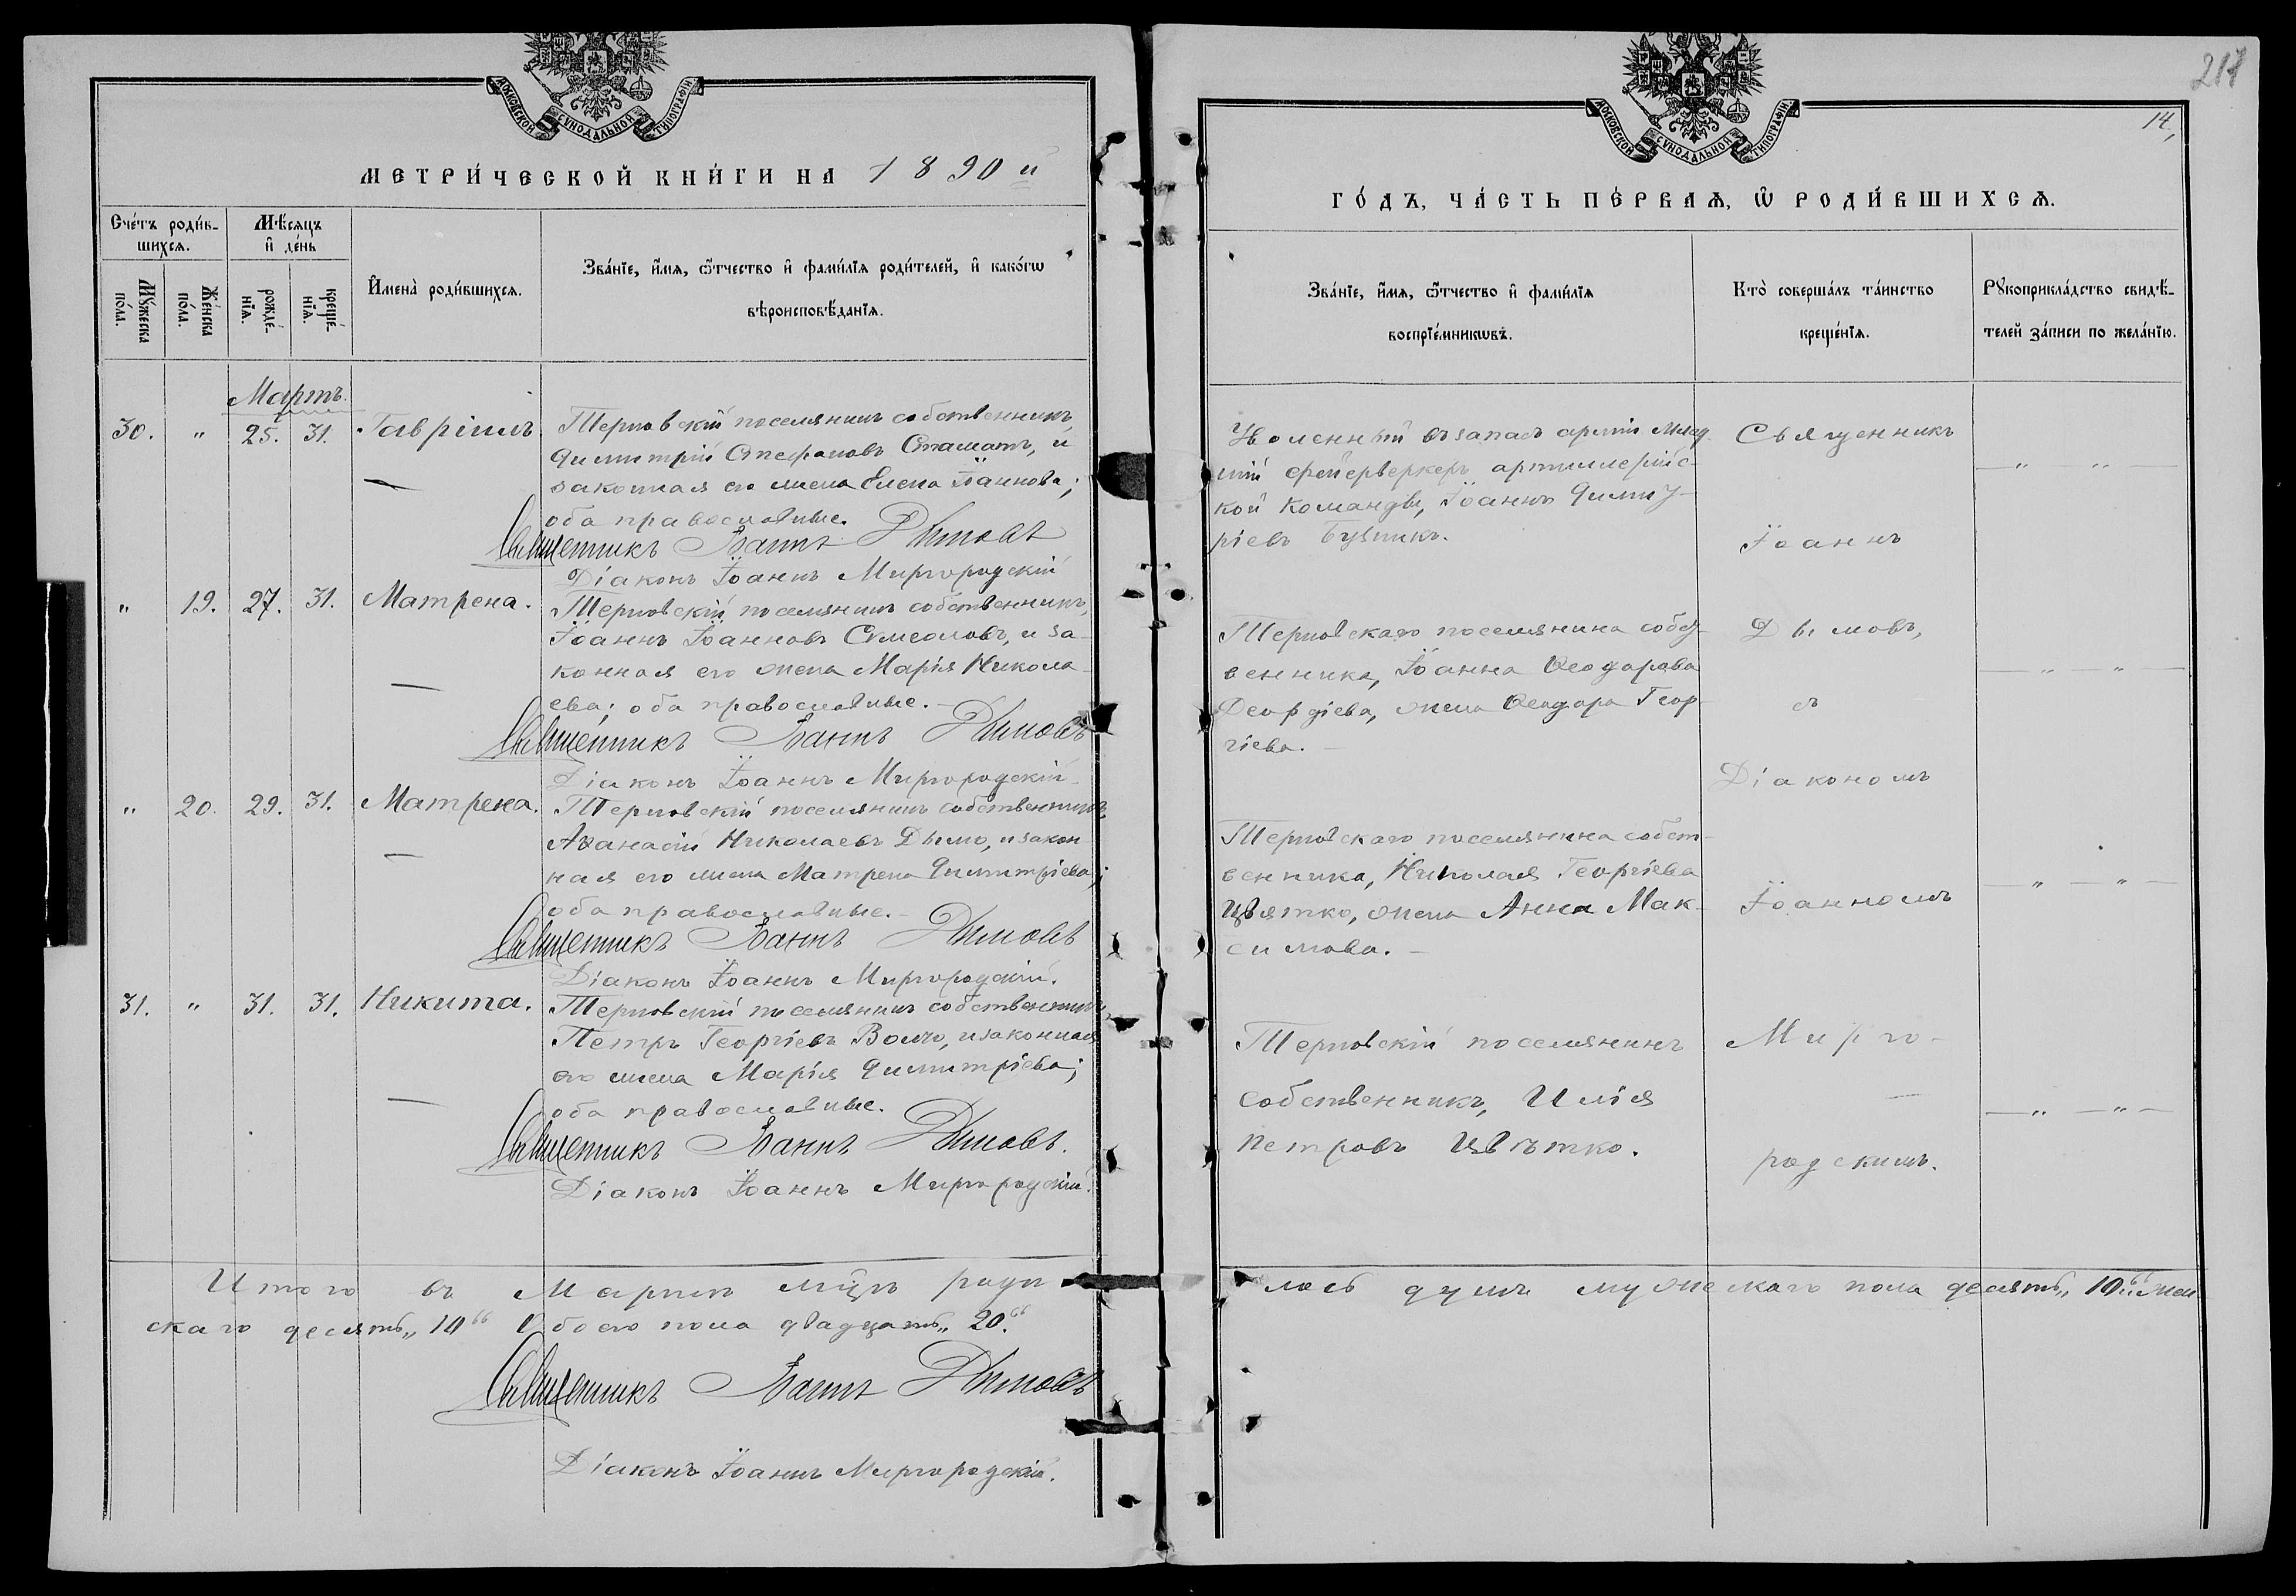 МОСКОВСКОЙ СѴНОДАЛЬНОЙ ТИПОГРАФІИ
МЕТРИ́ЧЕСКОЙ КНИ́ГИ НА 1890 й
Сче́тъ роди́в-
шихся.
Мѣ́сяцъ
и҆ де́нь
Му́жеска
по́ла.
Же́нска
по́ла.
рожде́-
нїѧ.
креще́-
нїѧ.
И҆мена̀ роди́вшихсѧ.
Зва́нїе, и҆́мѧ, ѻ҆́тчество и҆ фами́лїѧ роди́телей, и҆ како́гѡ
вѣроисповѣ́данїѧ.
Мартъ.
30. " 25. 31. Гавріилъ. Терновскій поселянинъ собственникъ,
Димитрій Стефановъ Стаматъ, и
законная его жена Елена Іоаннова;
оба православные.
Священникъ Іоаннъ Дымовъ
Діаконъ Іоаннъ Миргородскій
" 19. 27. 31. Матрена. Терновскій поселянинъ собственникъ,
Іоаннъ Іоанновъ Симеоновъ, и за-
конная его жена Марія Никола-
ева; оба православные.
Священникъ Іоаннъ Дымовъ
Діаконъ Іоаннъ Миргородскій
" 20. 29. 31. Матрена. Терновскій поселянинъ собственникъ,
Аѳанасій Николаевъ Дымо, и закон
ная его жена Матрена Димитріева;
оба православные.
Священникъ Іоаннъ Дымовъ
Діаконъ Іоаннъ Миргородскій.
31. " 31. 31. Никита. Терновскій поселянинъ собственникъ,
Петръ Георгіевъ Волчо, и законная
его жена Марія Димитріева;
оба православные.
Священникъ Іоаннъ Дымовъ.
Діаконъ Іоаннъ Миргородскій.
Итого въ Мартѣ мцѣ роди
скаго десять „10“ Обоего пола двадцать „20.“
Священникъ Іоаннъ Дымовъ
Діаконъ Іоаннъ Миргородскій.
217
14,
МОСКОВСКОЙ СѴНОДАЛЬНОЙ ТИПОГРАФІИ
ГО́ДЪ, ЧА́СТЬ ПЕ́РВАѦ, Ѡ҆ РОДИ́ВШИХСѦ.
Зва́нїе, и҆́мѧ, ѻ҆́тчество и҆ фами́лїѧ
воспрїе́мникѡвъ.
Кто̀ соверша́лъ та́инство
креще́нїѧ.
Рꙋкоприкла́дство свидѣ́-
телей за́писи по жела́нїю.
Уволенный въ запасъ арміи млад
шій фейерверкеръ артиллерійс-
кой команды, Іоаннъ Димит-
ріевъ Бузникъ.
Священникъ
Іоаннъ
Терновскаго поселянина собст-
венника, Іоанна Ѳеодорова
Георгіева, жена Ѳеодора Геор-
гіева.
Дымовъ,
съ
Діакономъ
Терновскаго поселянина собст-
венника, Николая Георгіева
Цвятко, жена Анна Мак-
симова.
Іоанномъ
Терновскій поселянинъ
собственникъ, Илія
Петровъ Цвѣтко.
Мирго-
родскимъ.
лось душъ мужескаго пола десять „10“ жен